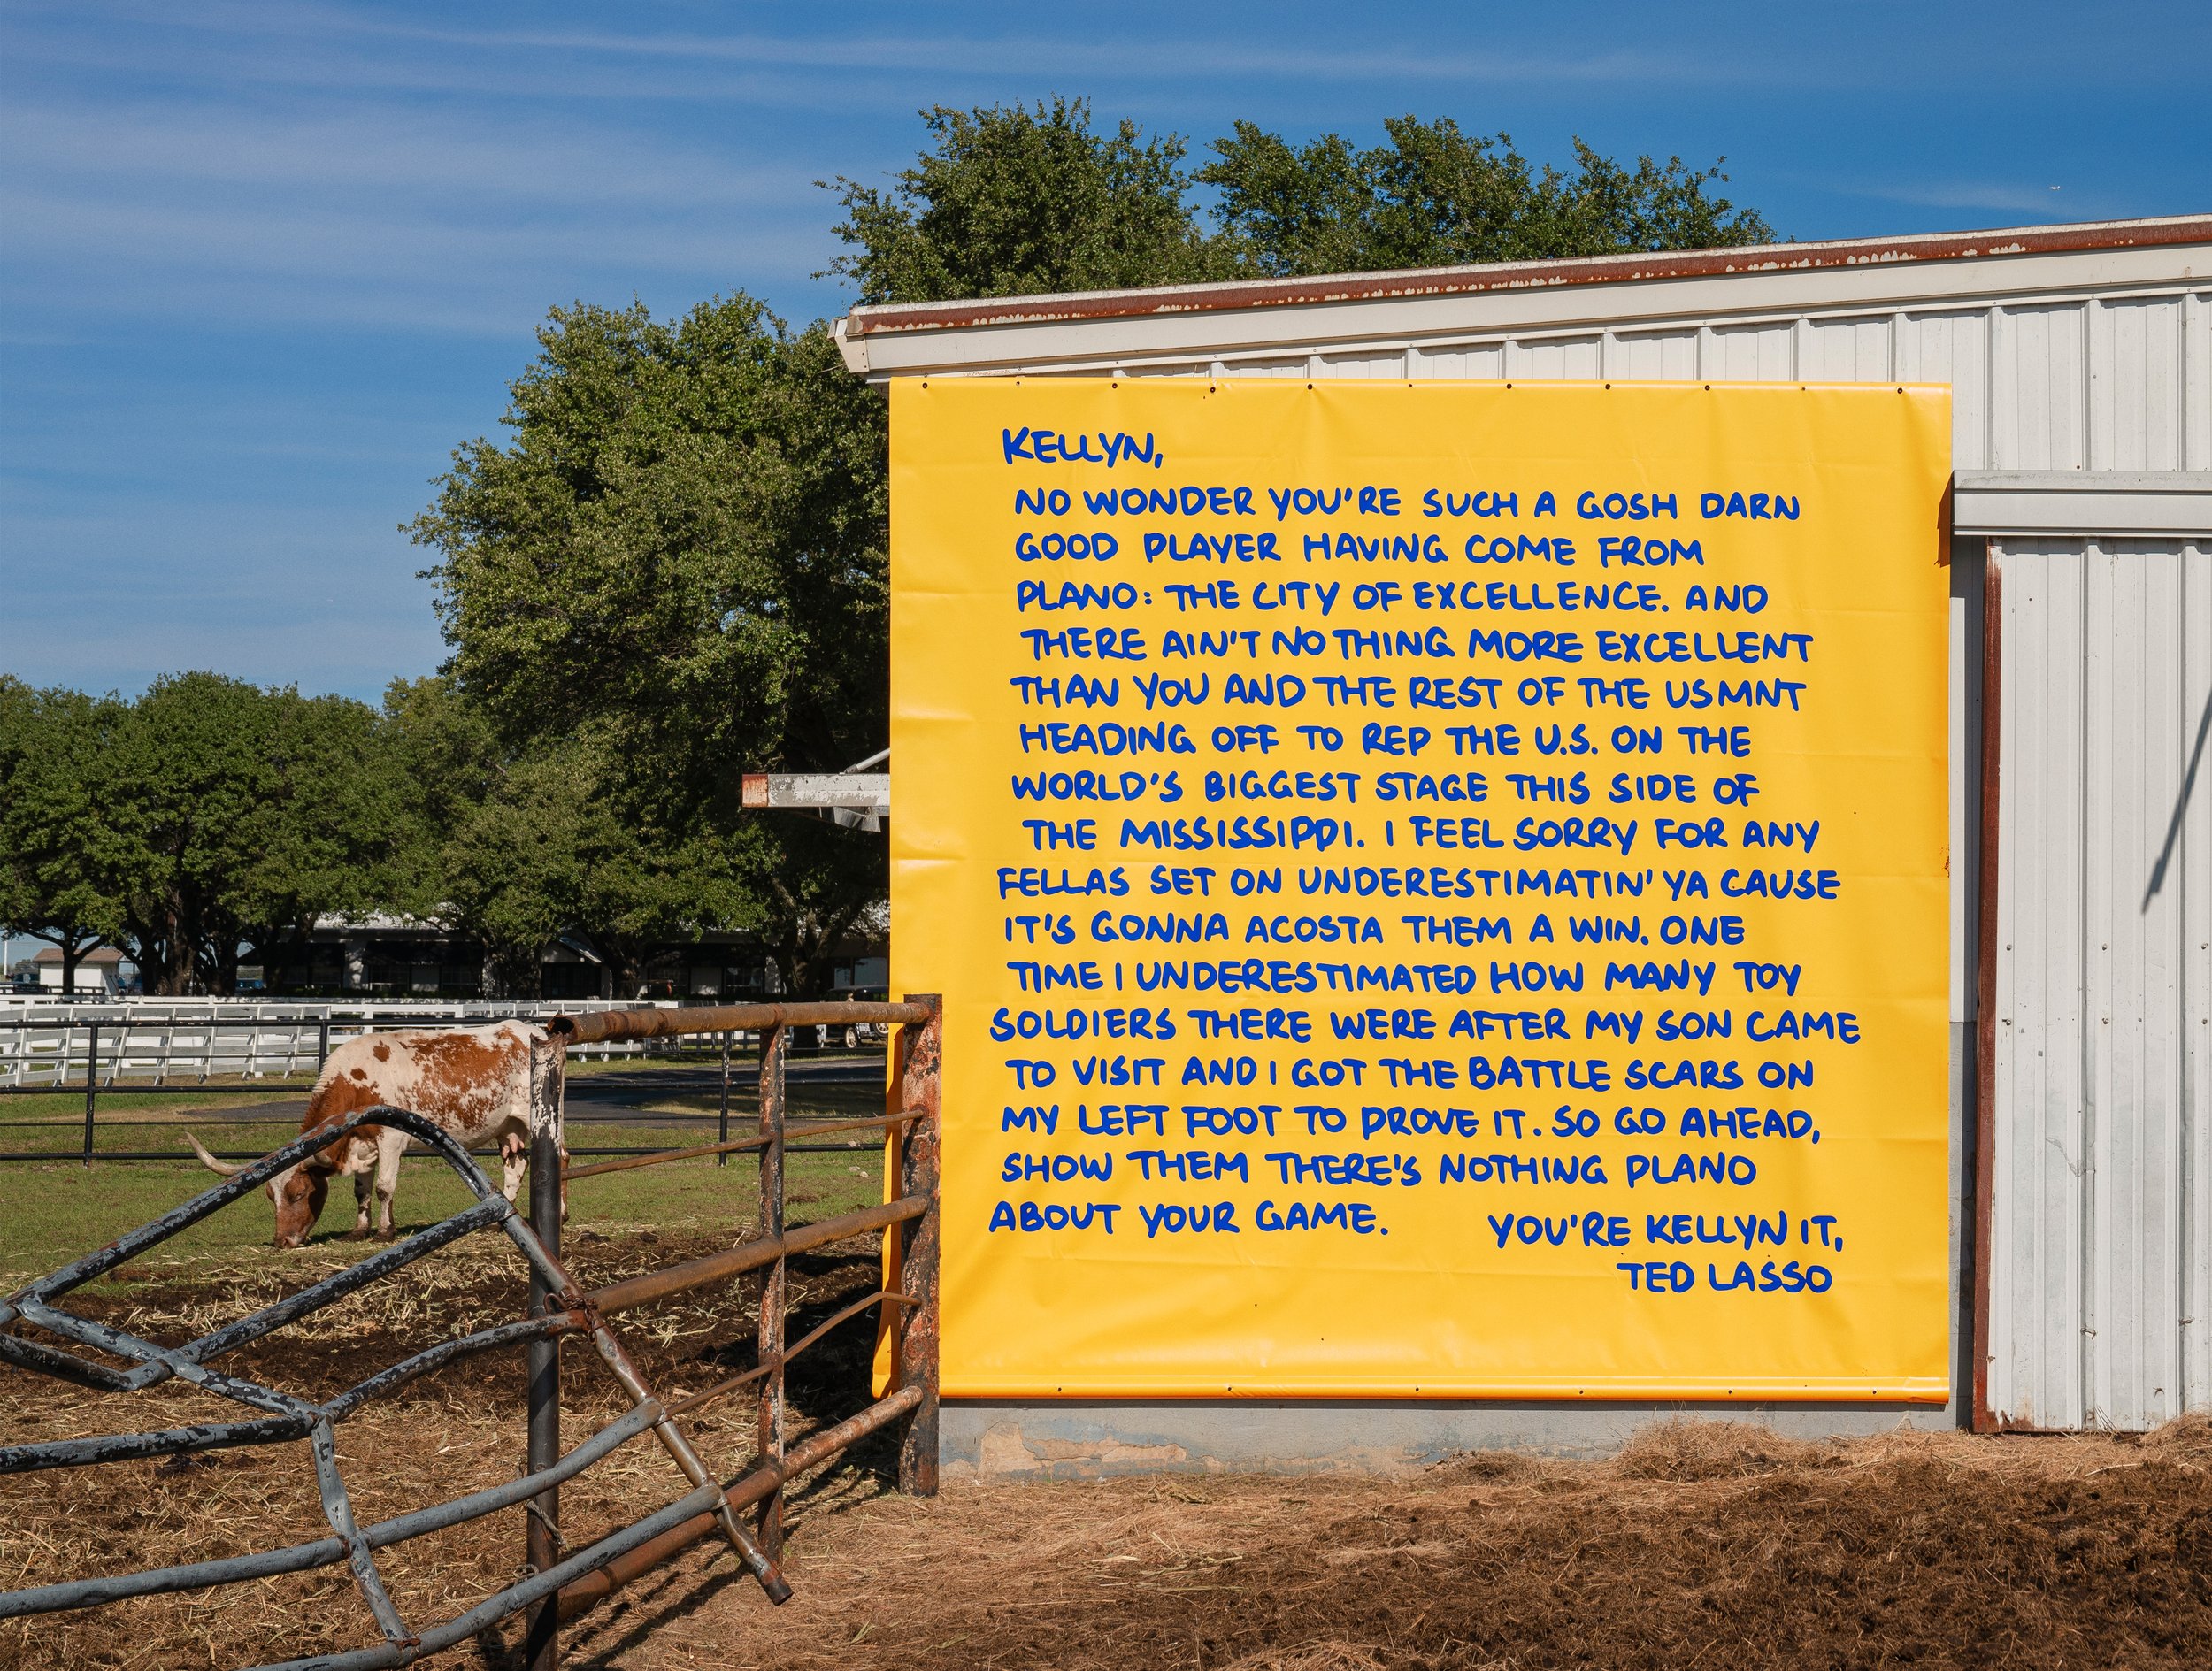 KELLYN,
NO WONDER YOU'RE SUCH A GOSH DARN
GOOD PLAYER HAVING COME FROM
PLANO: THE CITY OF EXCELLENCE. AND
THERE AIN'T NOTHING MORE EXCELLENT
THAN YOU AND THE REST OF THE USMNT
HEADING OFF TO REP THE U.S. ON THE
WORLD'S BIGGEST STAGE THIS SIDE OF
THE MISSISSIPPI. I FEEL SORRY FOR ANY
FELLAS SET ON UNDERESTIMATIN' YA CAUSE
IT'S GONNA ACOSTA THEM A WIN. ONE
TIME I UNDERESTIMATED HOW MANY TOY
SOLDIERS THERE WERE AFTER MY SON CAME
TO VISIT AND I GOT THE BATTLE SCARS ON
MY LEFT FOOT TO PROVE IT. SO GO AHEAD,
SHOW THEM THERE'S NOTHING PLANO
ABOUT YOUR GAME.
YOU'RE KELLYN IT,
TED LASSO